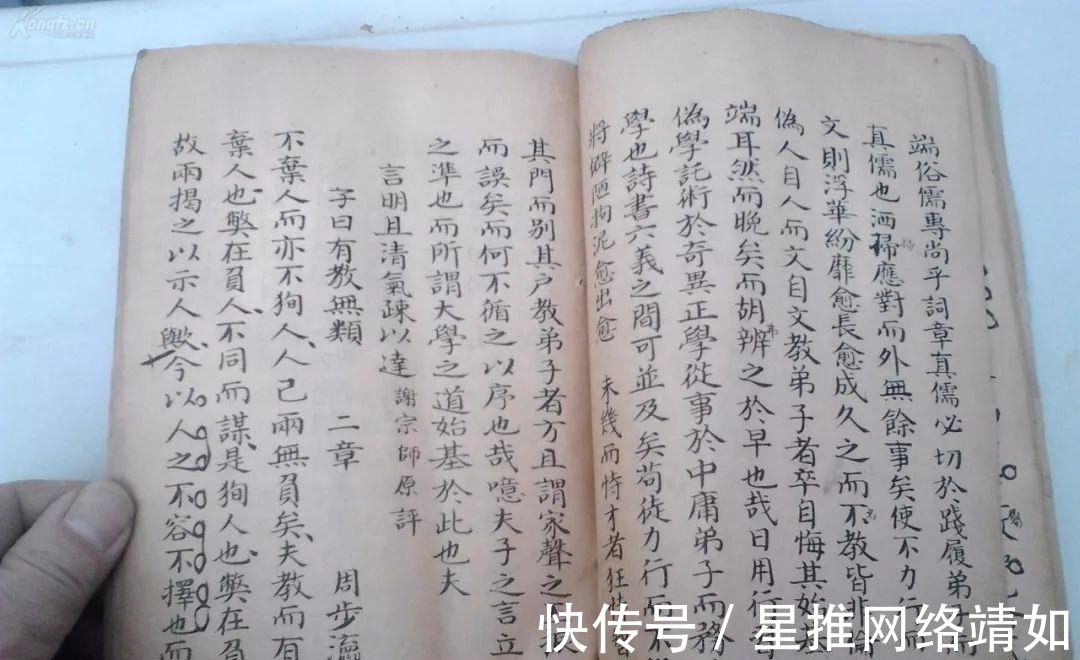 Kongfz.cn
端俗儒專尚乎詞章真儒必切於踐履弟
真儒也洒掃應對而外無餘事矣使不力行而
文則浮華紛靡愈長愈成久之而不教皆非倫
偽人自人而文自文教弟子者卒自悔其始基
端耳然而晚矣而胡弗辨之於早也哉日用行
偽學託術於奇異正學從事於中庸弟子而務
學也詩書六義之間可並及矣苟徒力行而不
將僻陋拘泥愈出愈 未幾而恃才者狂
其門而別其户教弟子者方且謂家聲之
而誤矣而何不循之以序也哉噫夫子之言立
之準也而所謂大學之道始基於此也夫
言明且清氣疎以達 謝宗師原評
子曰有教無類 二章 周步瀛
不棄人而亦不狥人、人己兩無負矣、夫教而有
棄人也、獘在負人、不同而謀、是狥人也、獘在負
故兩揭之以示人歟、今以人之不容不擇也而
快传号/星推网络靖如